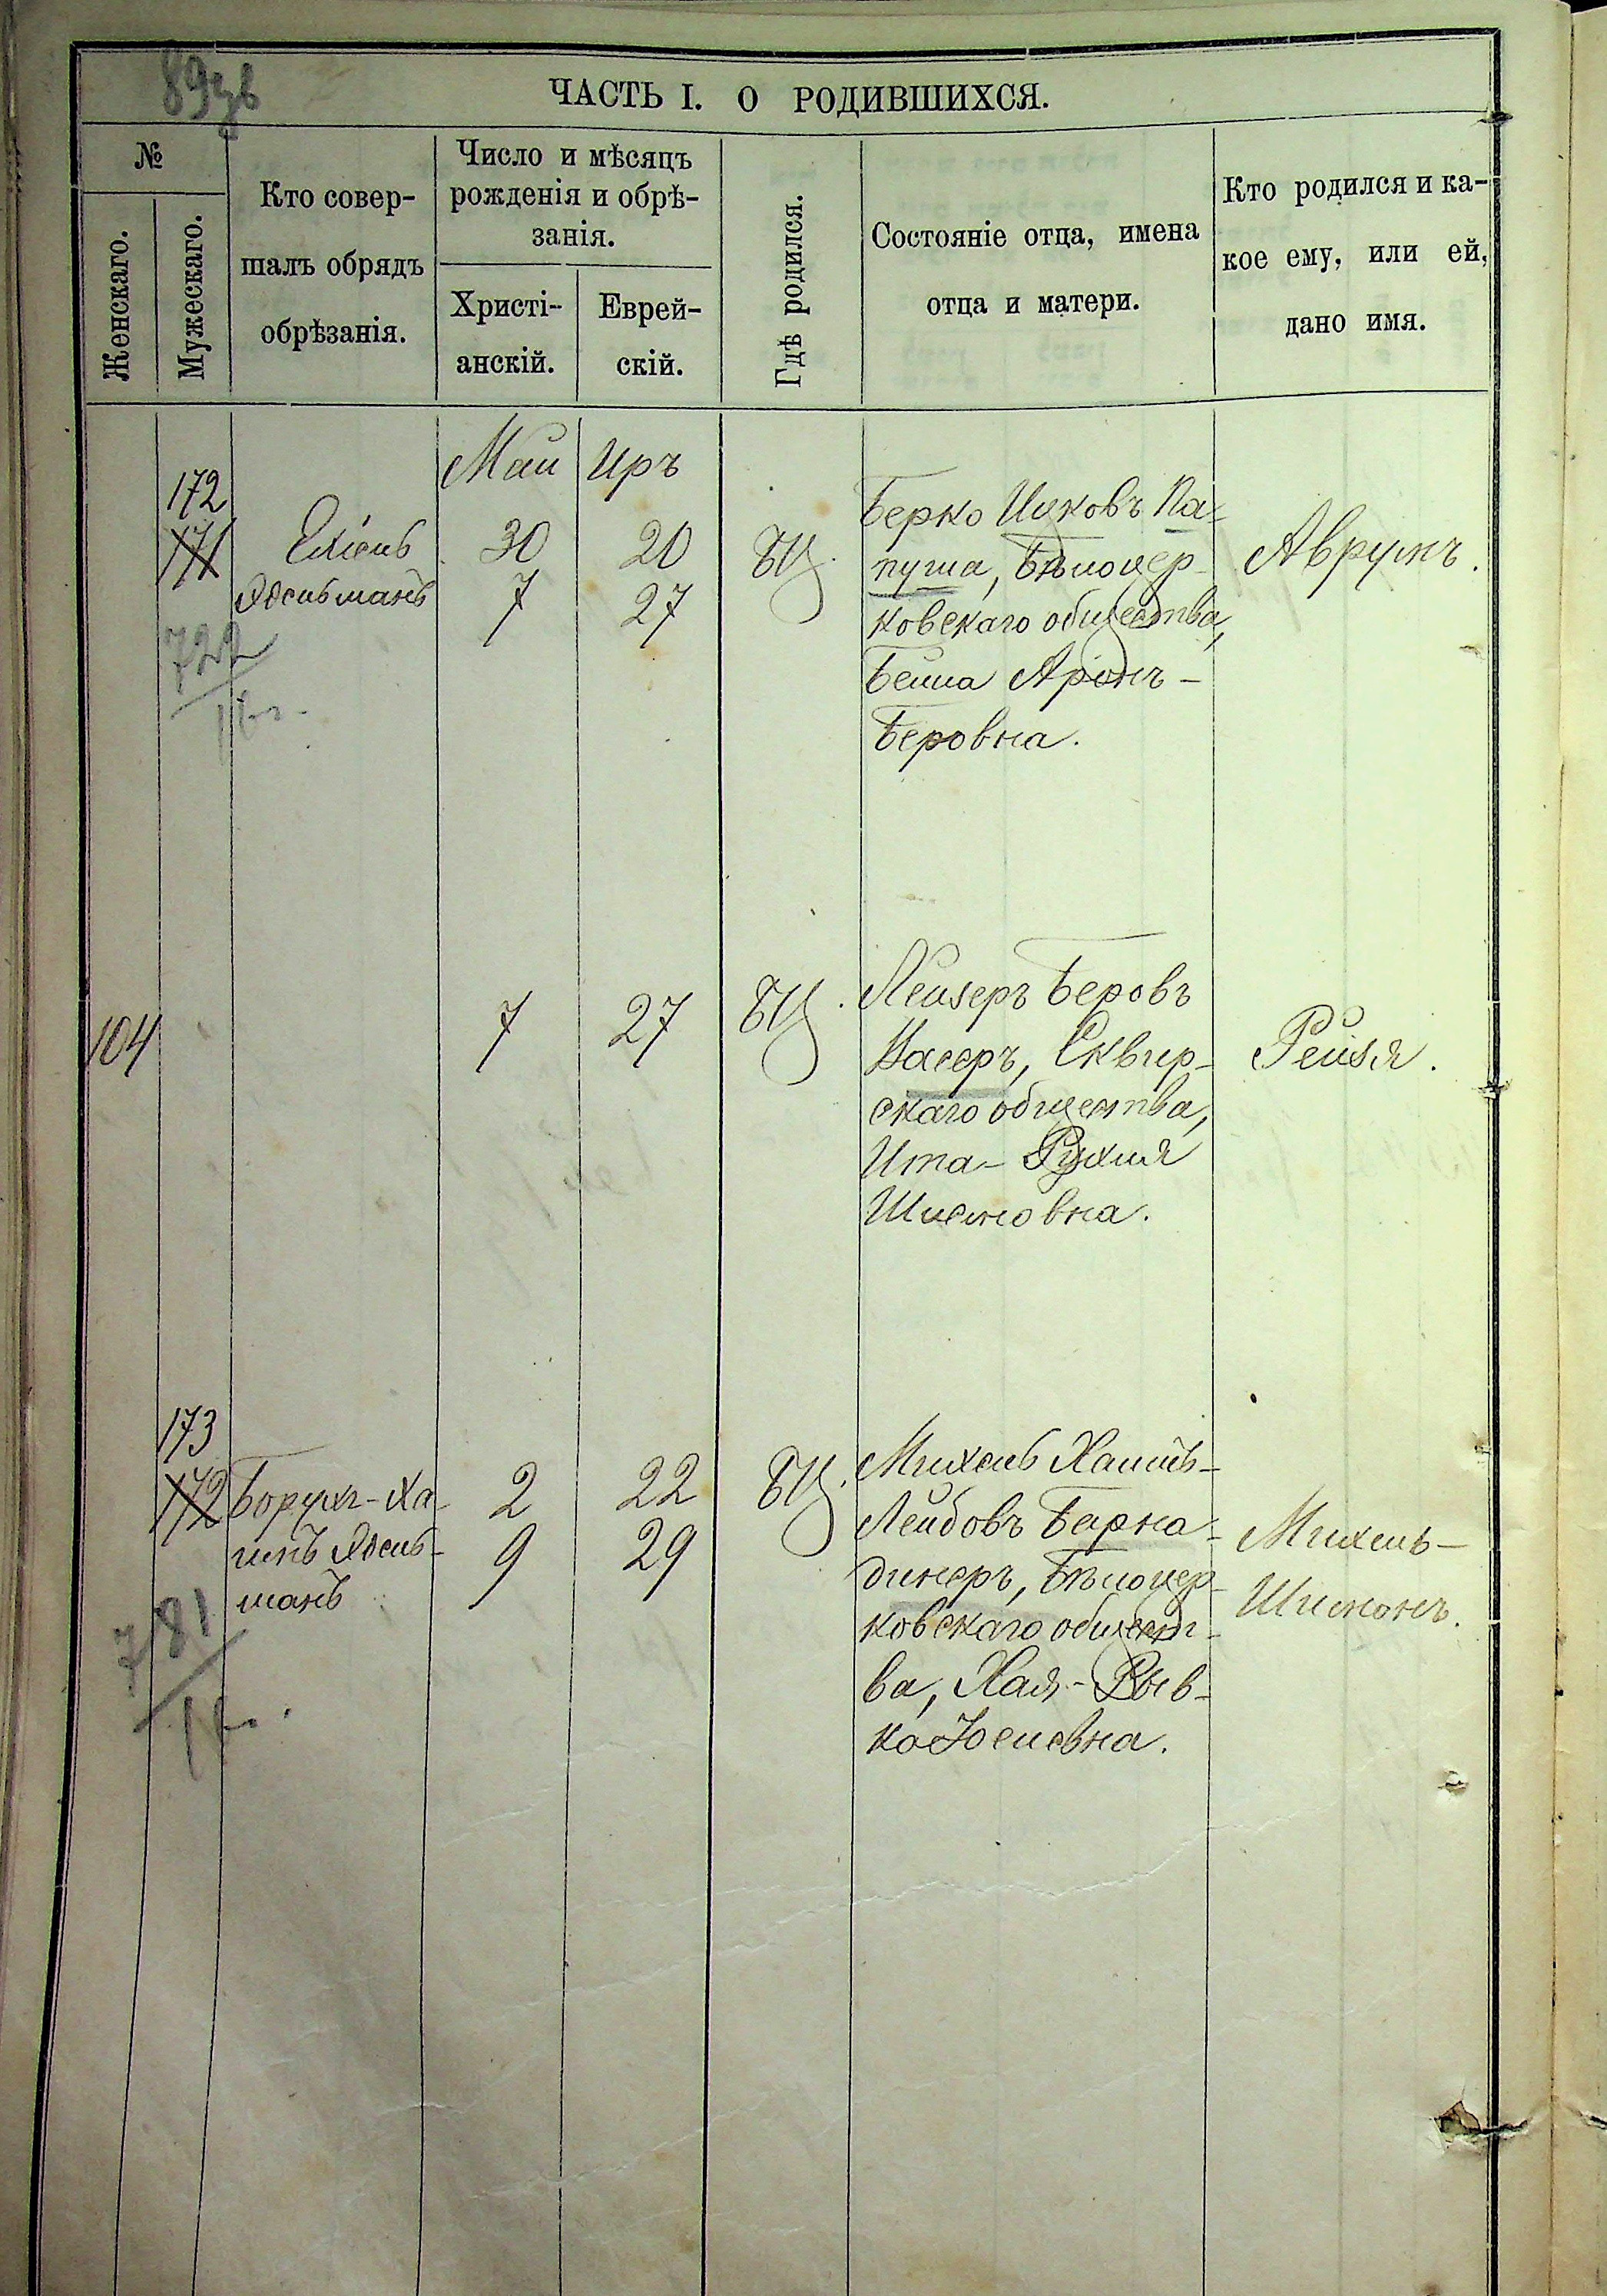 89зв
ЧАСТЬ I. О РОДИВШИХСЯ.
№
Женскаго.
Мужескаго.
Кто совер-
шалъ обрядъ
обрѣзанія.
Число и мѣсяцъ
рожденія и обрѣ-
занія.
Христі-
анскій.
Еврей-
скій.
Гдѣ родился.
Состояніе отца, имена
отца и матери.
Кто родился и ка-
кое ему, или ей,
дано имя.
Маи Иръ
172
171
30
7
20
27
БЦ.
Берко Ицковъ Па-
пуша, Бѣлоцер-
ковскаго общества,
Бейла Аронъ-
Беровна.
Аврумъ.
722
104
7
27
БЦ.
Лейзеръ Беровъ
Насеръ, Сквир-
скаго общества,
Ита-Рухля
Шлемовна.
Рейзя.
173
172
Борухъ-Ха-
имъ
2
9
22
29
БЦ.
Михель Хаимъ-
Лейбовъ Барна-
динеръ, Бѣлоцер-
ковскаго общест-
ва, Хая-Рыв-
ка Юсиевна.
Михель-
Шимонъ.
781